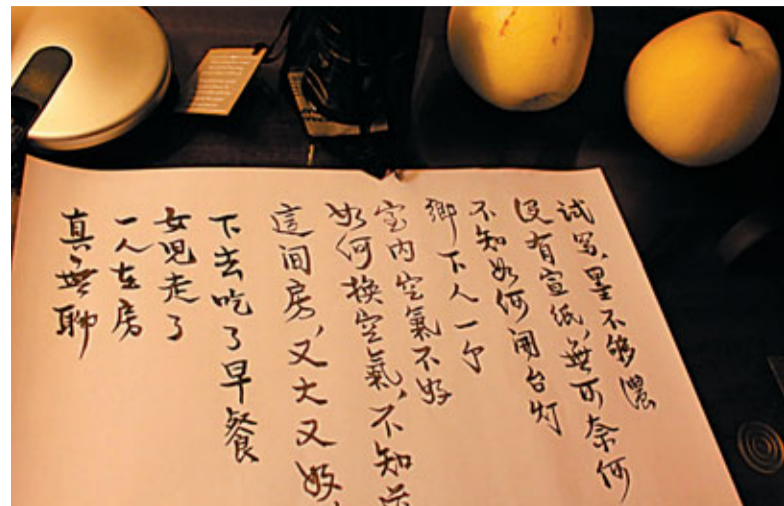 试写,墨不够濃
没有宣纸,無可奈何
不知如何台灯
鄉下人一个
室内空氣不好
如何换空氣,不知
這间房,又大又好
下去吃了早餐
女児走了
一人在房
真無聊